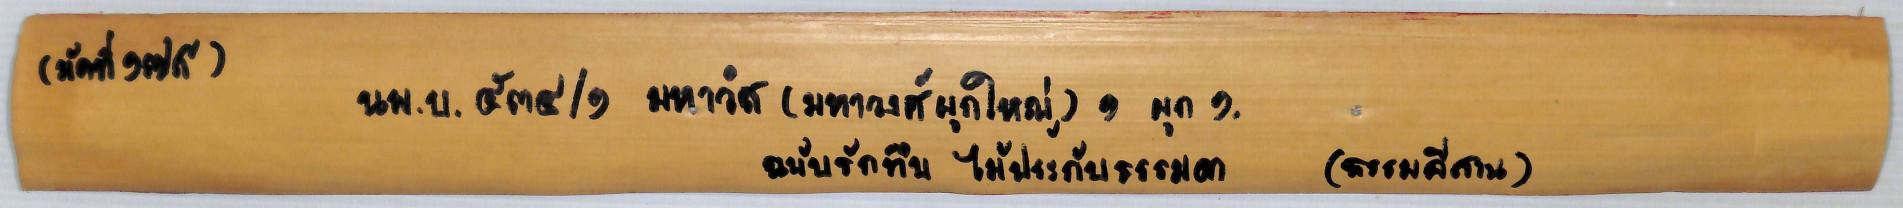 (มัดที่ ๑๗๕)
นพ.บ. ๕๓๔/๑ มหาวํส (มหาวงศ์ผูกใหญ่) ๑ ผูก ๑.
ฉบับรักทึบ ไม้ประกับธรรมดา (ธรรมอีสาน)